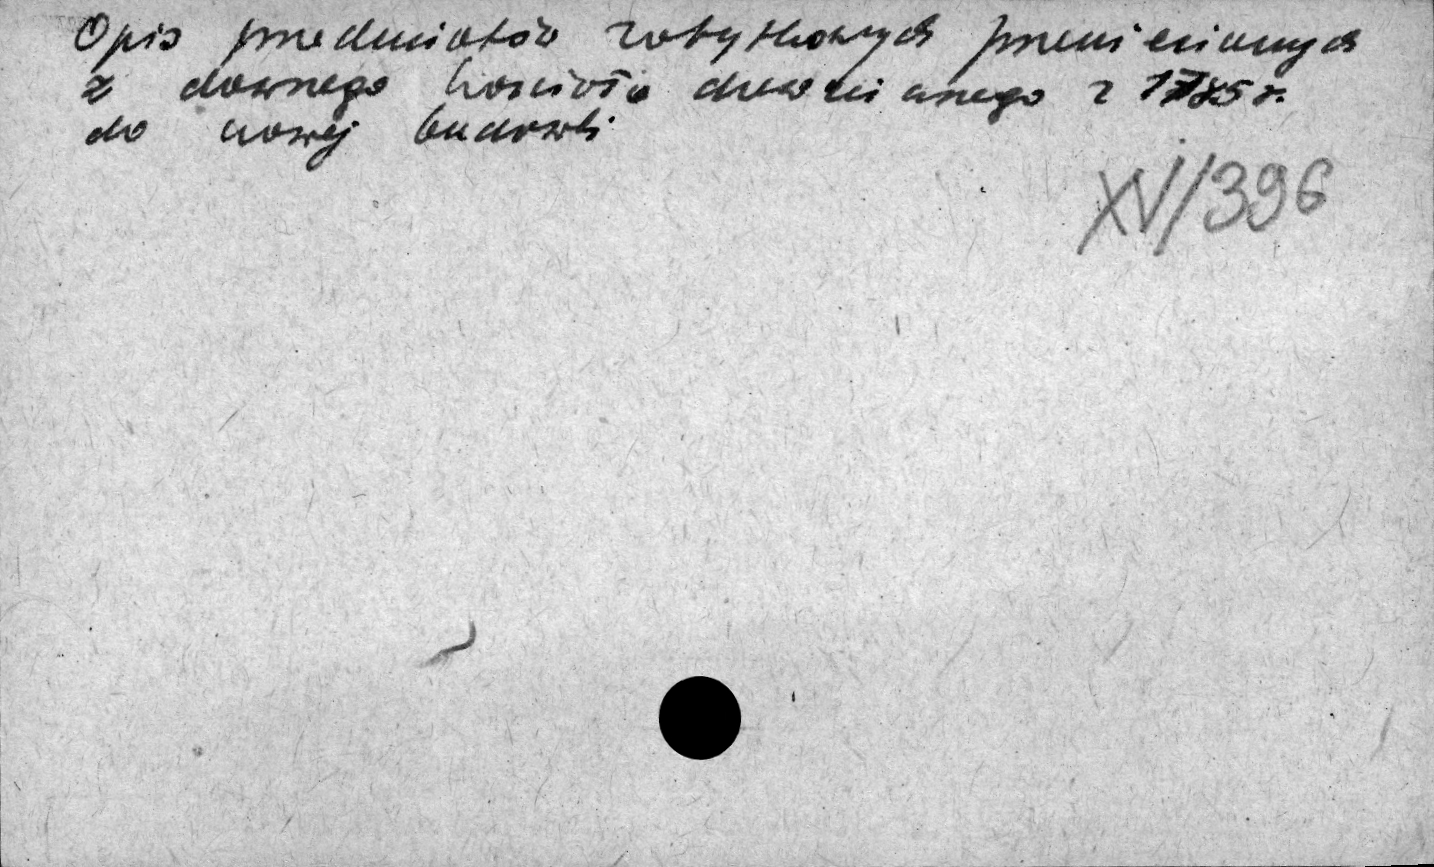 Opis przedmiotów zabytkowych przeniesionych
z dawnego kościoła drewnianego z 1785 r.
do nowej budowli
XV/396